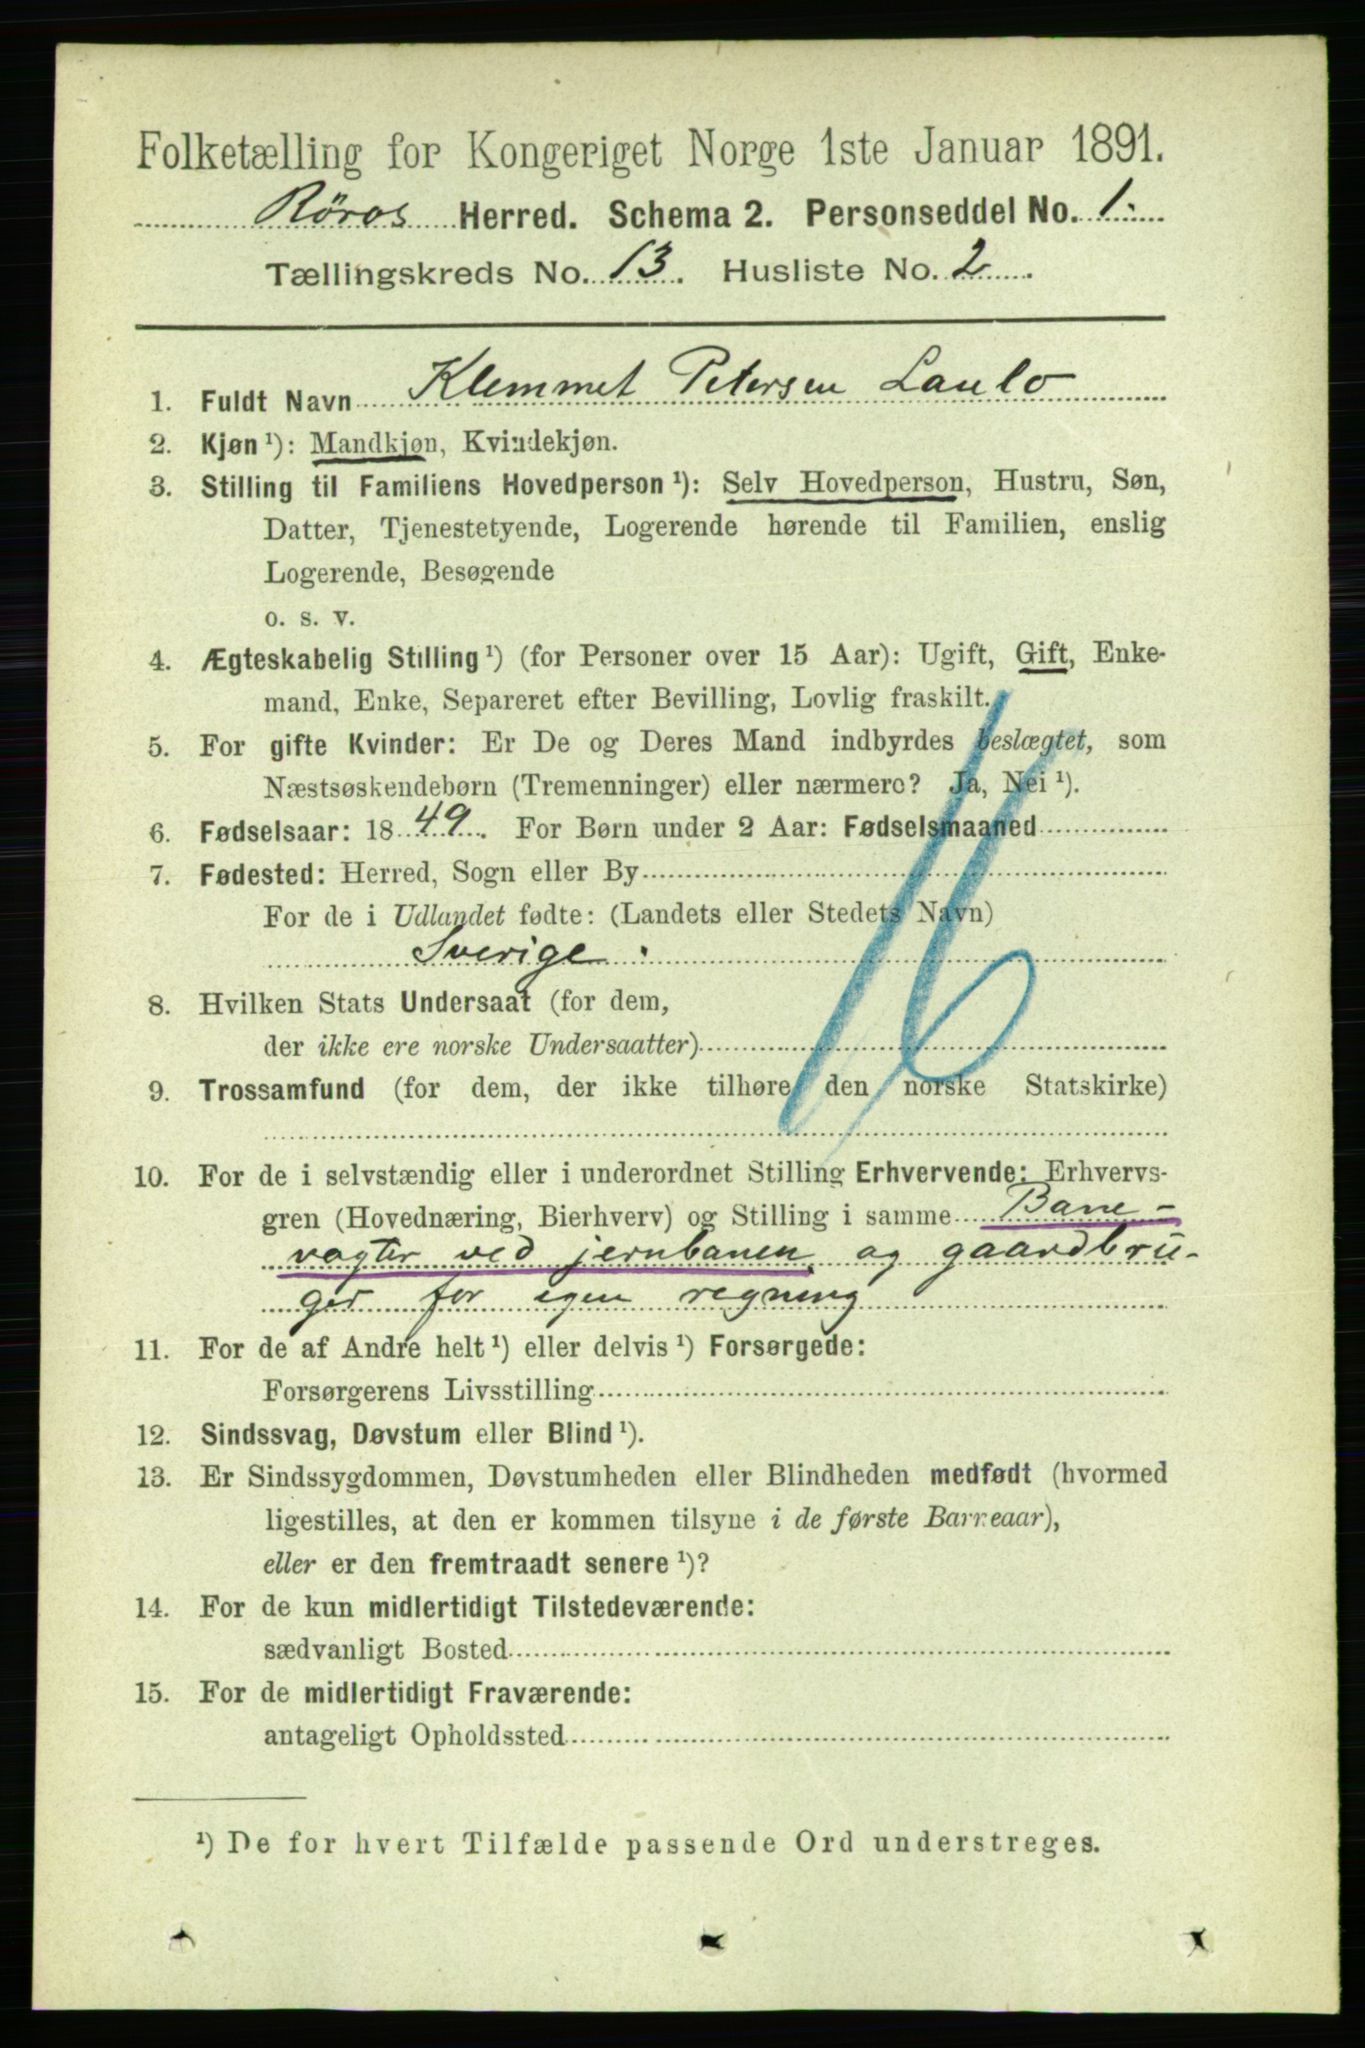 Folketælling for Kongeriget Norge 1ste Januar 1891.
Röros Herred. Schema 2. Personseddel No. 1.
Tællingskreds No. 13. Husliste No. 2.
1. Fuldt Navn Klemmet Petersen Laulo
2. Kjøn ¹): Mandkjøn, Kvindekjøn.
3. Stilling til Familiens Hovedperson ¹): Selv Hovedperson, Hustru, Søn,
Datter, Tjenestetyende, Logerende hørende til Familien, enslig
Logerende, Besøgende
o. s. v.
4. Ægteskabelig Stilling ¹) (for Personer over 15 Aar): Ugift, Gift, Enke-
mand, Enke, Separeret efter Bevilling, Lovlig fraskilt.
5. For gifte Kvinder: Er De og Deres Mand indbyrdes beslægtet, som
Næstsøskendebørn (Tremenninger) eller nærmere? Ja, Nei ¹).
6. Fødselsaar: 1849. For Børn under 2 Aar: Fødselsmaaned
7. Fødested: Herred, Sogn eller By
For de i Udlandet fødte: (Landets eller Stedets Navn)
Sverige.
16
8. Hvilken Stats Undersaat (for dem,
der ikke ere norske Undersaatter)
9. Trossamfund (for dem, der ikke tilhøre den norske Statskirke)
10. For de i selvstændig eller i underordnet Stilling Erhvervende: Erhvervs-
gren (Hovednæring, Bierhverv) og Stilling i samme Bane-
vogter ved jernbanen og gaardbru-
ger for egen regning
11. For de af Andre helt ¹) eller delvis ¹) Forsørgede:
Forsørgerens Livsstilling
12. Sindssvag, Døvstum eller Blind ¹).
13. Er Sindssygdommen, Døvstumheden eller Blindheden medfødt (hvormed
ligestilles, at den er kommen tilsyne i de første Barneaar),
eller er den fremtraadt senere ¹)?
14. For de kun midlertidigt Tilstedeværende:
sædvanligt Bosted
15. For de midlertidigt Fraværende:
antageligt Opholdssted
¹) De for hvert Tilfælde passende Ord understreges.